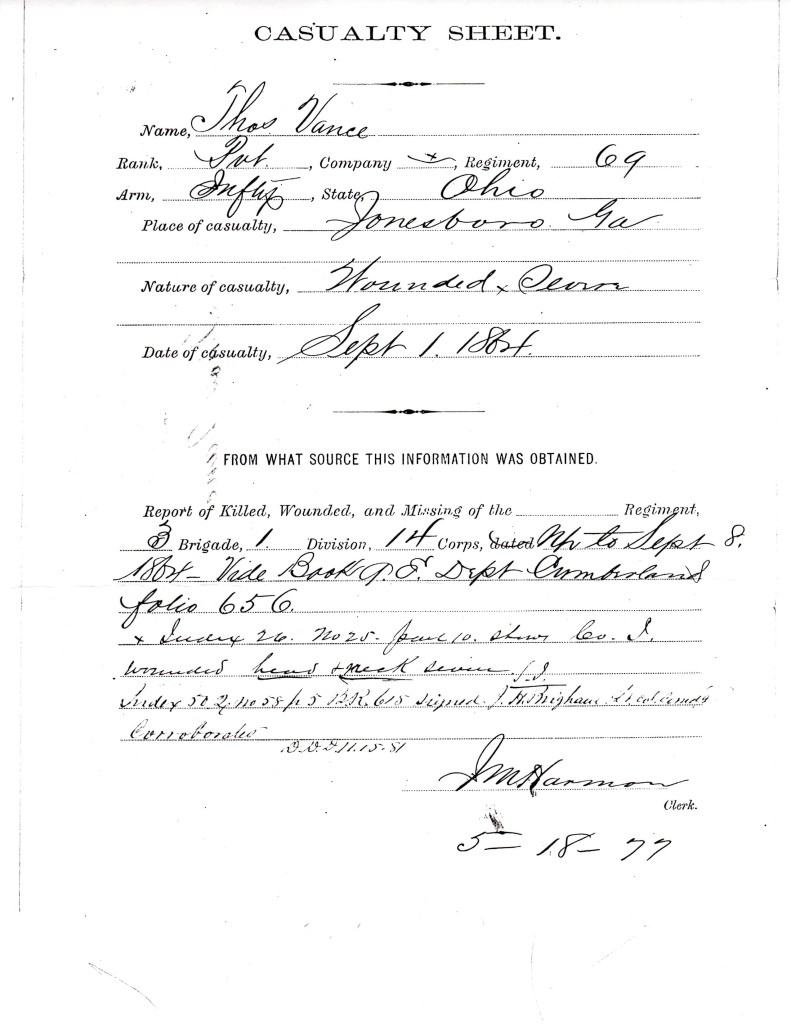 CASUALTY SHEET.
Name, Thos Vance
Rank, Pvt. , Company x , Regiment, 69
Arm, Inftry , State, Ohio
Place of casualty, Jonesboro. Ga
Nature of casualty, Wounded x Severe
Date of casualty, Sept 1. 1864.
FROM WHAT SOURCE THIS INFORMATION WAS OBTAINED.
Report of Killed, Wounded, and Missing of the Regiment,
3 Brigade, 1. Division, 14 Corps, dated Up to Sept 8.
1864 – Vide Book Dept Cumberland
folio 656.
x Index 26. No 25. shows Co. I.
wounded head & neck severe
Index 502, no 58 p 5 B.R. 615 signed. J. H. Brigham. Lt Col Comd'g
Corroborates
11.15.81
J M Harmon
Clerk.
5 – 18 – 77